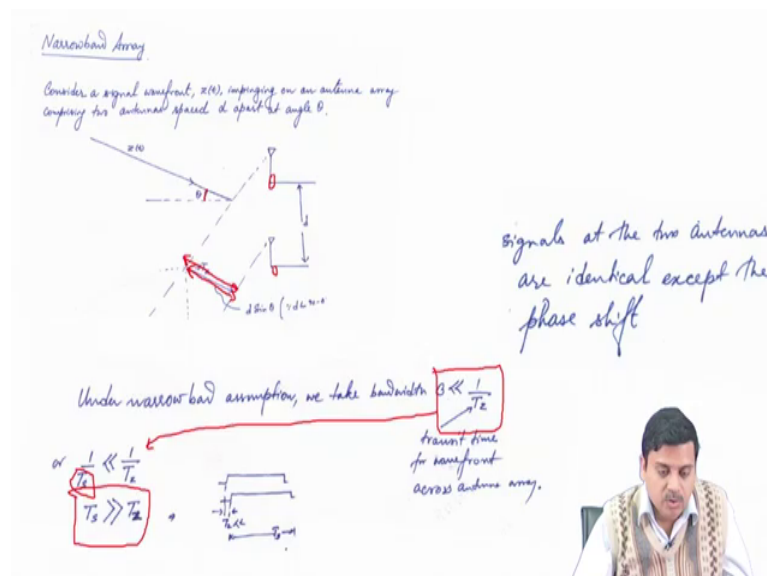 Narrowband Array.
Consider a signal wavefront, z(t), impinging on an antenna array
comprising two antennas spaced d apart at angle θ.
z(t)
θ
d
d sin θ
signals at the two antennas
are identical except the
phase shift
Under narrowband assumption, we take bandwidth B ≪ 1/Tz
transit time
for wavefront
across antenna array.
or 1/Ts ≪ 1/Tz
Ts ≫ Tz